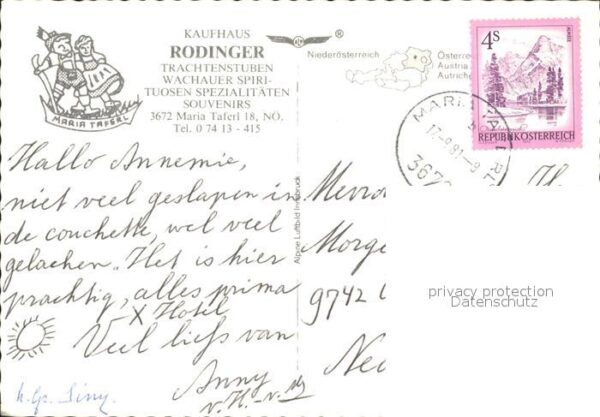 KAUFHAUS
RODINGER
TRACHTENSTUBEN
WACHAUER SPIRI-
TUOSEN SPEZIALITÄTEN
SOUVENIRS
3672 Maria Taferl 18, NÖ.
Tel. 0 74 13 - 415
MARIA TAFERL
®
Niederösterreich
Österre
Austria
Autriche
4S
ALMSEE
REPUBLIK ÖSTERREICH
MARIA TAFERL
17.-9.91-9
3672
Hallo Annemie,
niet veel geslapen in
de couchette, wel veel
gelachen. Het is hier
prachtig, alles prima
x Hotel
Veel liefs van
Anny
v.H.-v.
Alpine Luftbild Innsbruck
Mevro
Morge
9742
Ne
privacy protection
Datenschutz